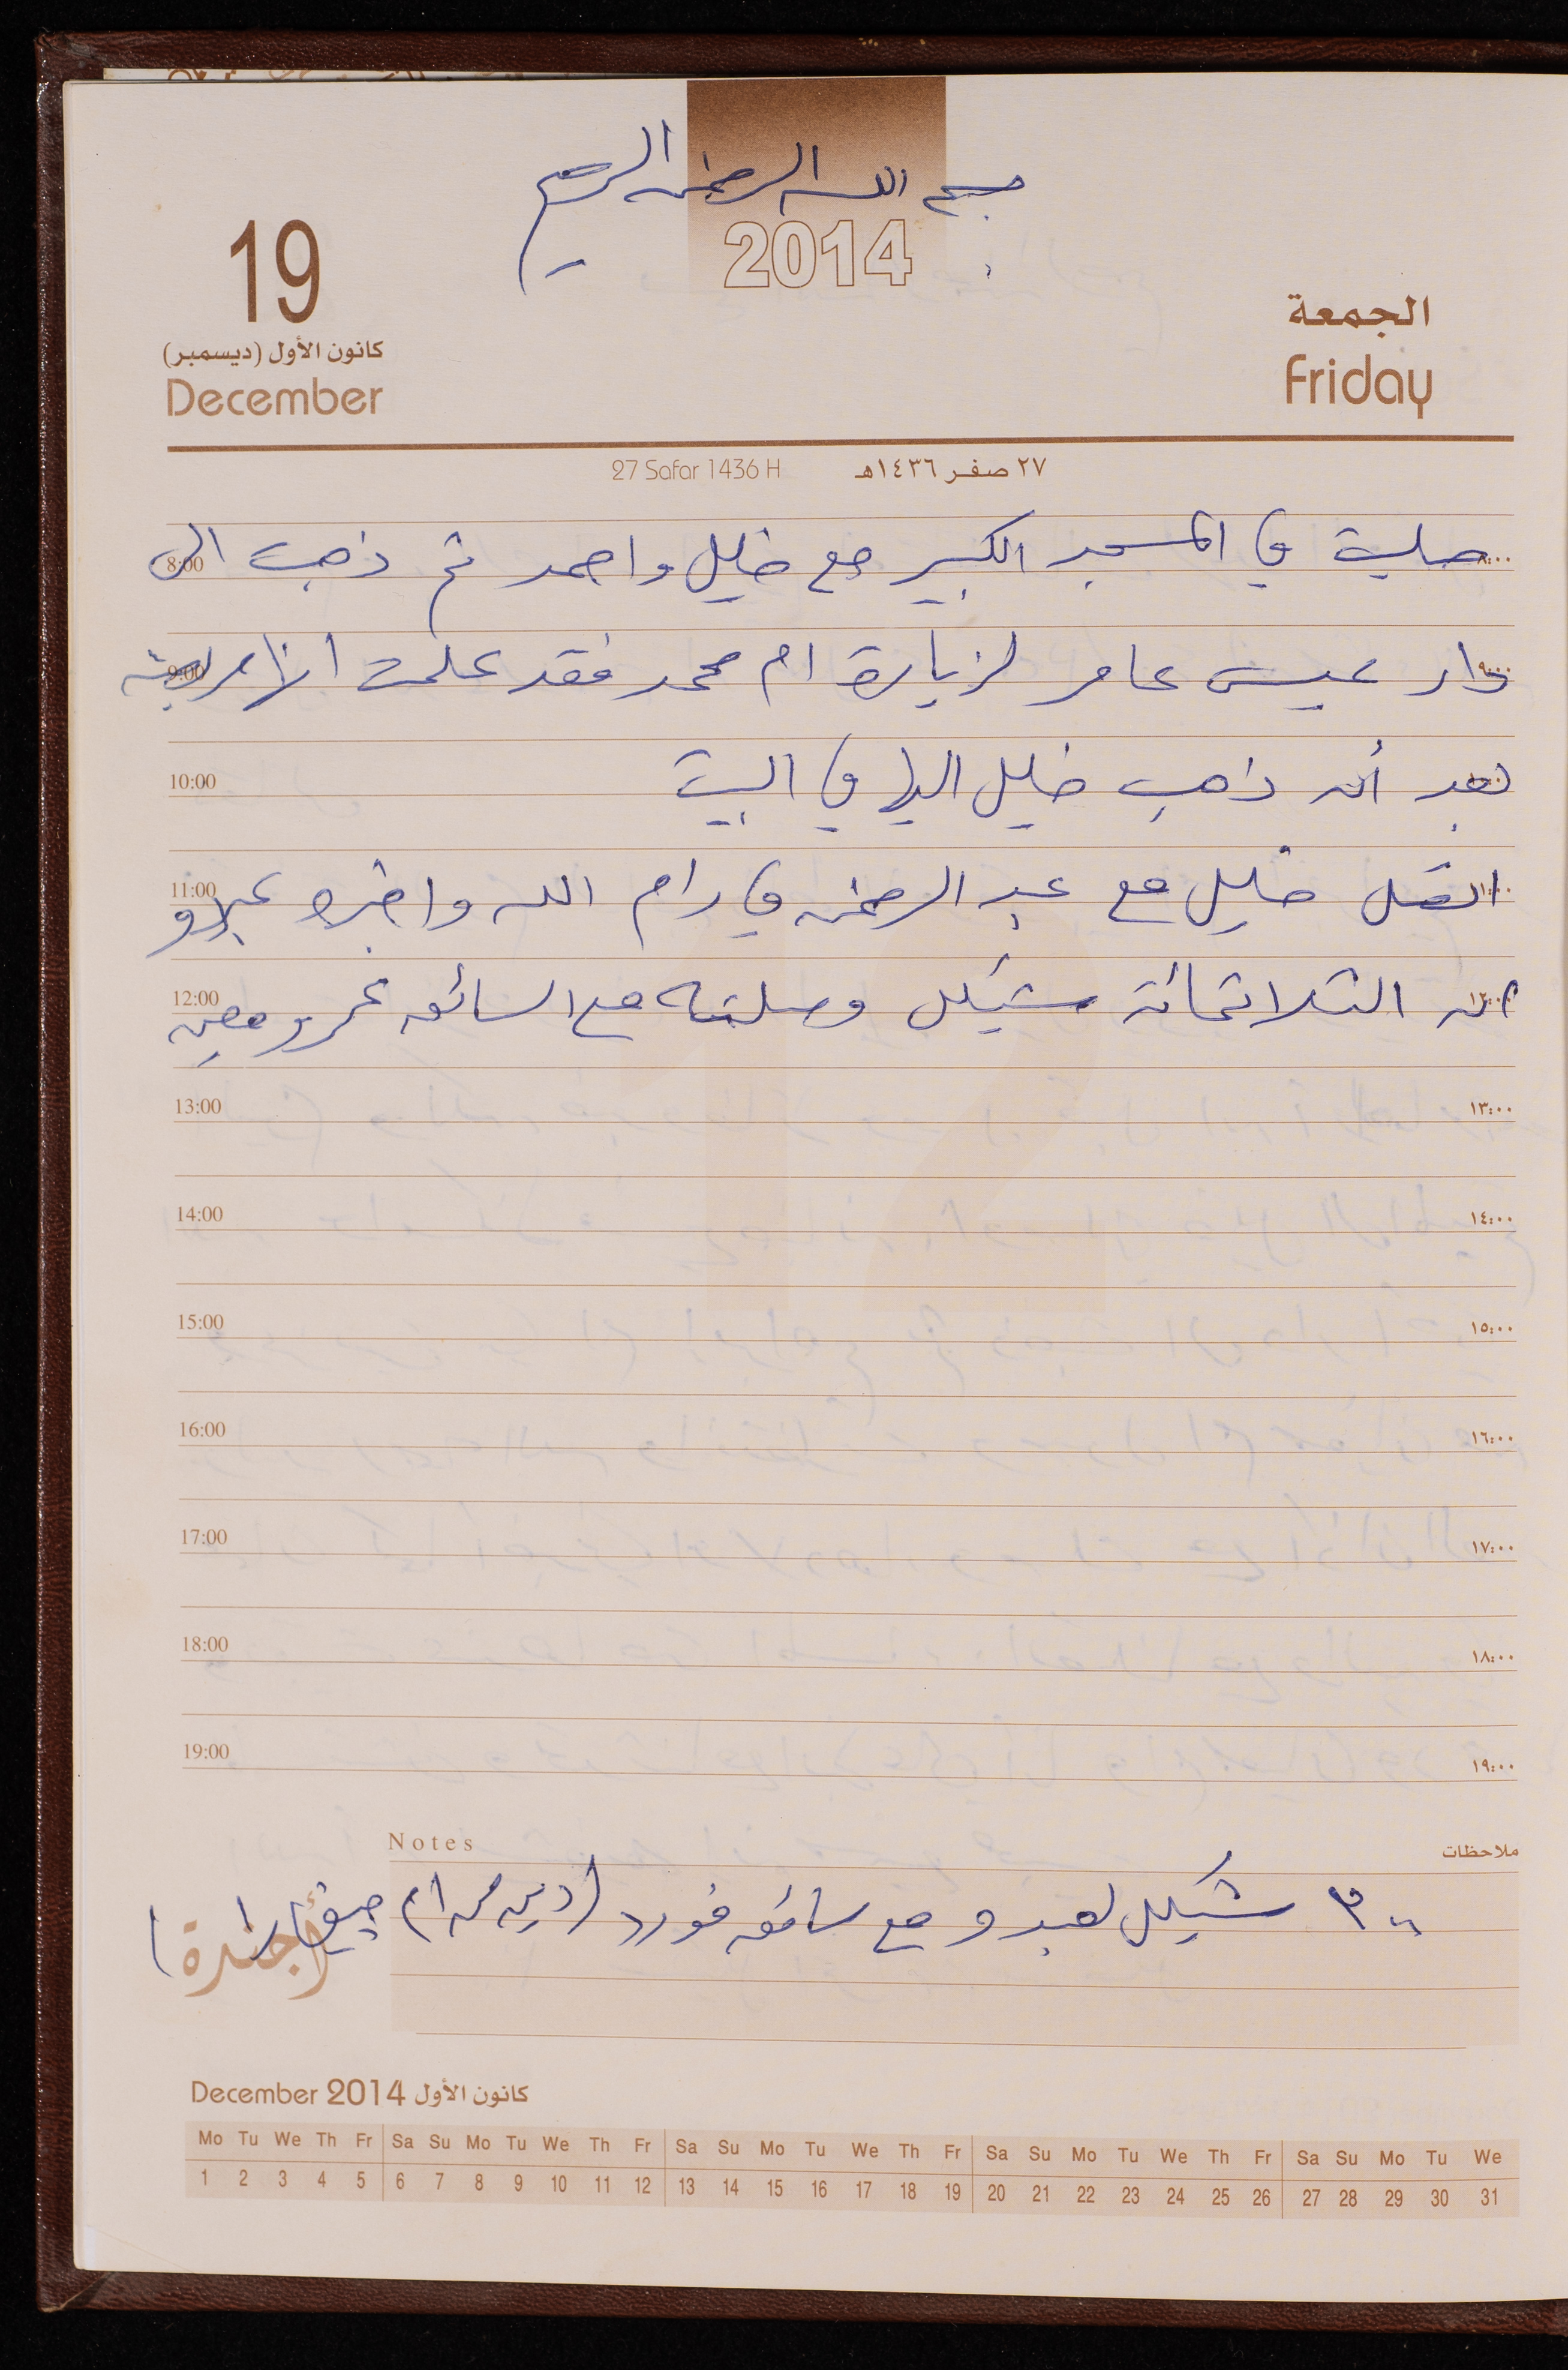 بسم الله الرحمن الرحيم
2014
19
كانون الأول (ديسمبر)
December
الجمعة
Friday
27 Safar 1436 H ٢٧ صفر ١٤٣٦هـ
8:00 صليت في المسجد الكبير مع خليل واحمد ثم ذهبت الى ٨:٠٠
9:00 دار عيسى عامر لزيارة ام محمد فقد علمت انها مريضة ٩:٠٠
10:00 بعد أن ذهب خليل اليها في البيت
11:00 اتصل خليل مع عبد الرحمن في رام الله واخبره عبدو ١١:٠٠
12:00 ان الثلاثمائة شيكل وصلته مع السائق عمر ١٢:٠٠
13:00 ١٣:٠٠
14:00 ١٤:٠٠
15:00 ١٥:٠٠
16:00 ١٦:٠٠
17:00 ١٧:٠٠
18:00 ١٨:٠٠
19:00 ١٩:٠٠
Notes ملاحظات
٣٠٠ شيكل لعبدو مع سائق فورد
أجندة
December 2014 كانون الأول
Mo Tu We Th Fr Sa Su Mo Tu We Th Fr Sa Su Mo Tu We Th Fr Sa Su Mo Tu We Th Fr Sa Su Mo Tu We
1 2 3 4 5 6 7 8 9 10 11 12 13 14 15 16 17 18 19 20 21 22 23 24 25 26 27 28 29 30 31